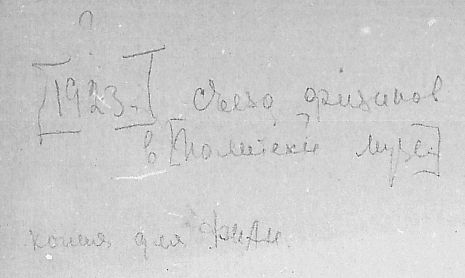 ?
[1923-] съезд физиков
в [Политехн музее]
копия для ФИАН.